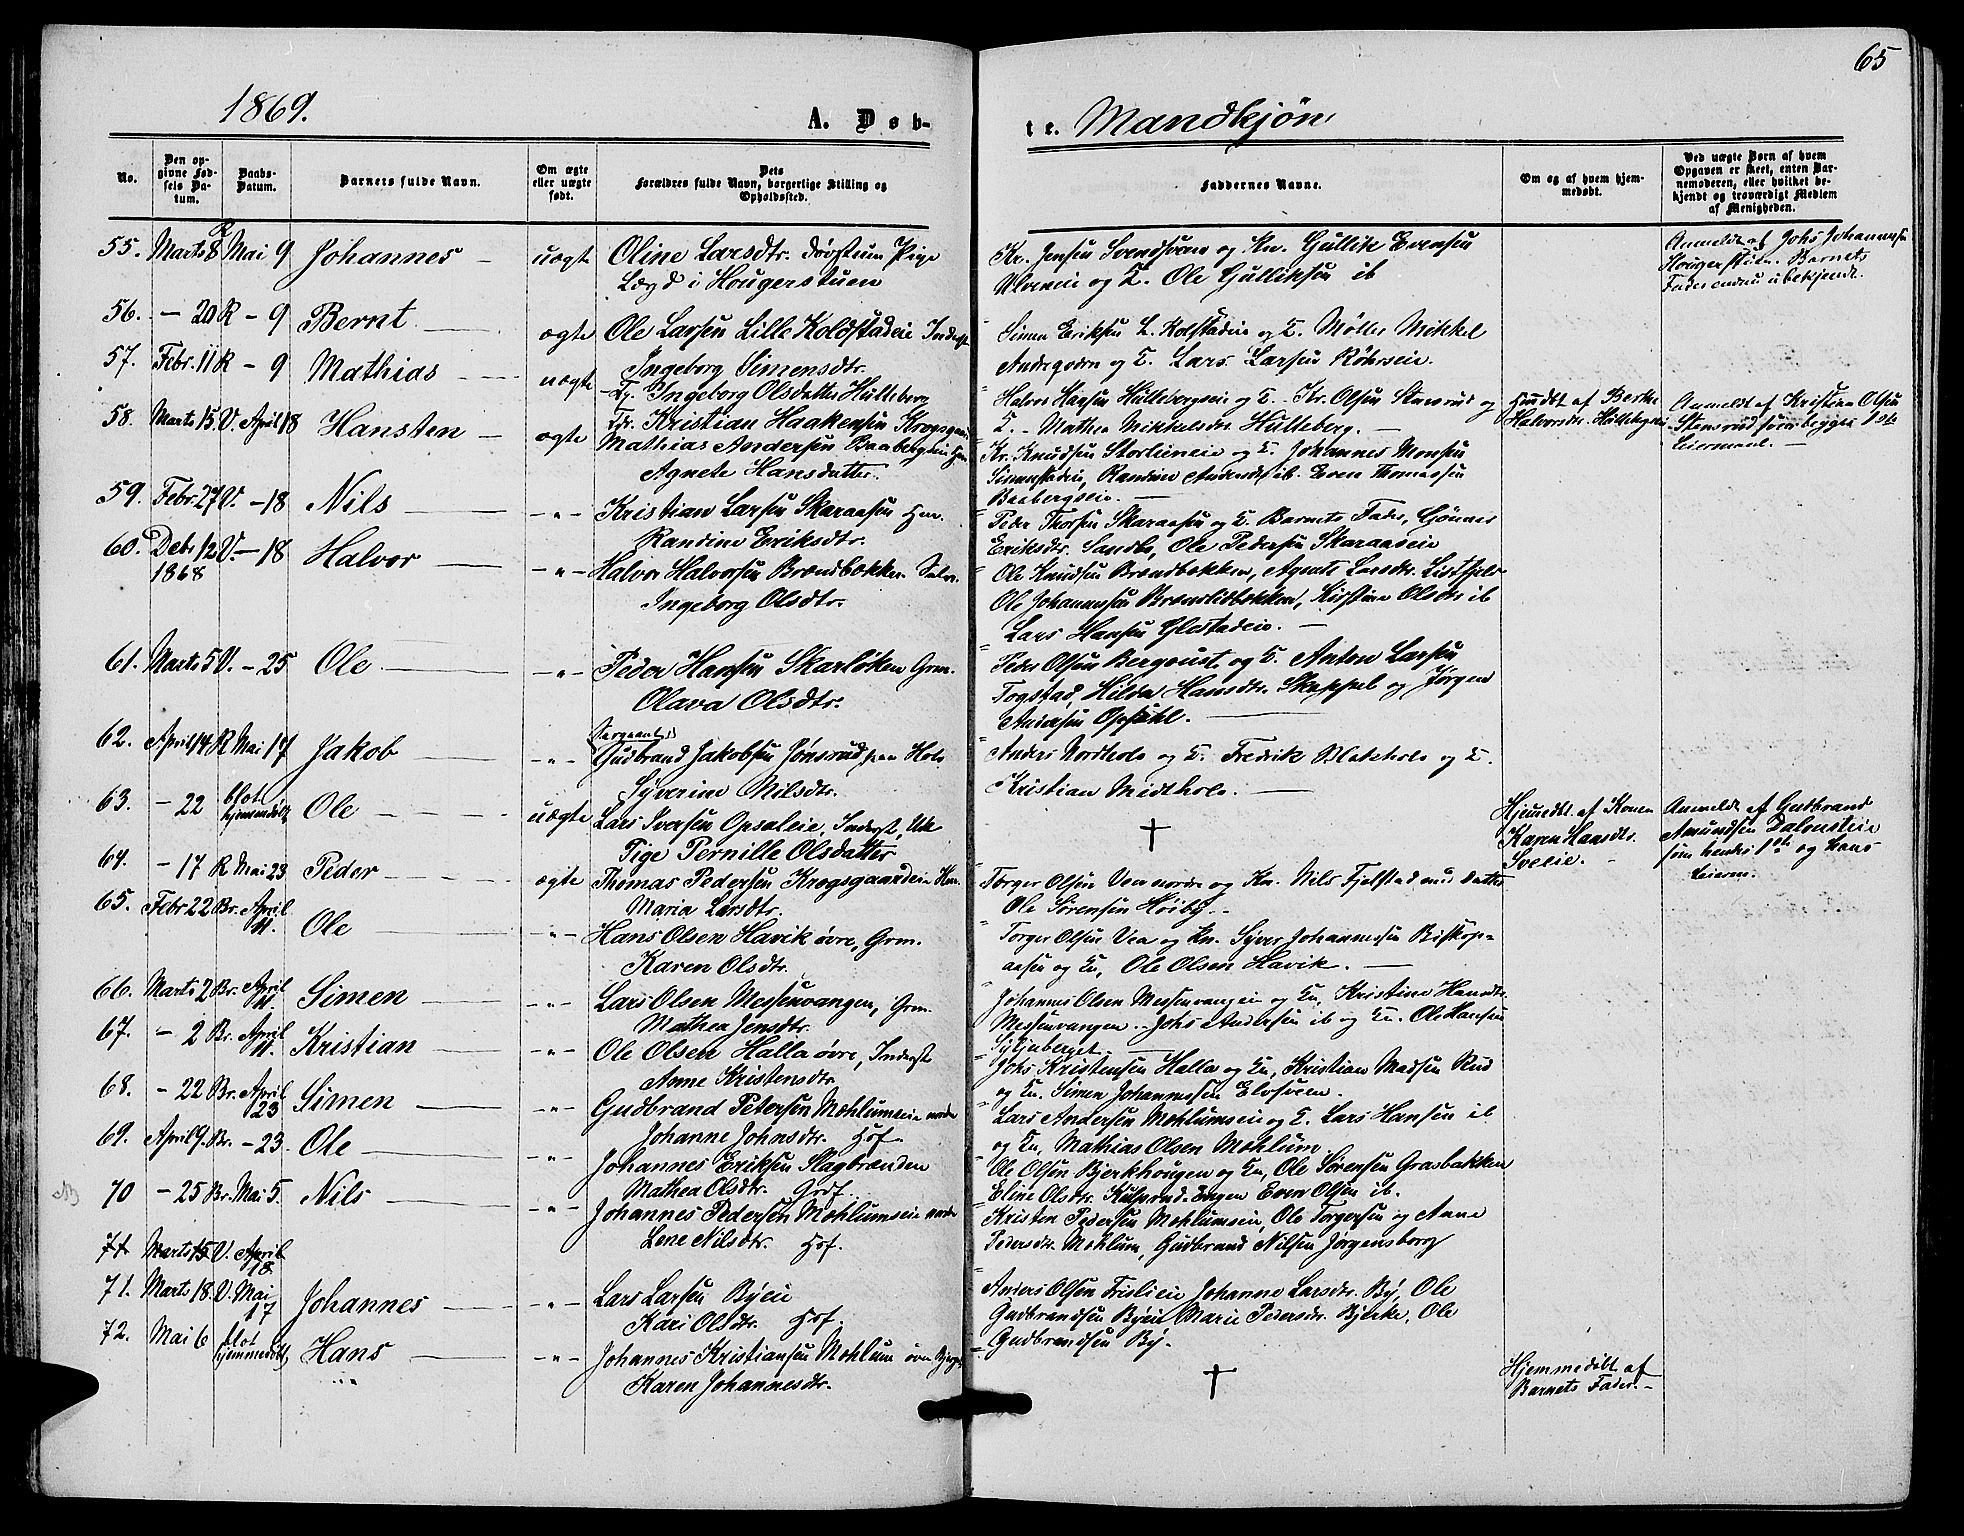 65
1869.
A. Døb-
te. Mandkjøn
No.
Den op-
givne Fød-
sels Da-
tum.
Daabs-
Datum.
Barnets fulde Navn.
Om ægte
eller uægte
født.
Dets
Forældres fulde Navn, borgerlige Stilling og
Opholdssted.
Faddernes Navne.
Om og af hvem hjem-
medøbt.
Ved uægte Børn af hvem
Opgaven er skeet, enten Bar-
nemoderen, eller hvilket be-
kjendt og troværdigt Medlem
af Menigheden.
55. Marts 8 R Mai 9 Johannes - uægte Oline Larsdtr. Pige
Lægd i Hougerstuen
Kr. Jensen og Kn. Gullik Evensen
og K. Ole Gulliksen ib
Anmeldt af Johs Johannesen
Hougerstuen. Barnets
Fader endnu ubekjendt.
56. - 20 R - 9 Bernt ægte Ole Larsen Lille Koldstadeie Inderst
Ingeborg Simensdtr.
Simen Eriksen L. Kolstadeie og K. Møller Mikkel
og K. Lars Larsen
57. Febr. 11 R - 9 Mathias - uægte Ingeborg Olsdatter Hulleberg
Kristian Haakensen
Halvor Hansen Hullebergseie og K. Kr. Olsen Stensrud og
K. - Mathea Mikkelsdtr Hulleberg. -
af Berthe
Halvorsdtr.
Anmeldt af Kristian Olsen
Stensrud som begges 1ste
Leiermaal. -
58. Marts 15 V. April 18 Hansten - ægte Mathias Andersen Baabergseie Hm.
Agnete Hansdatter.
Kr. Knudsen Storlieneie og K. Johannes Monsen
Simenstadeie, Randine ib. Even Thomassen
Baabergseie. -
59. Febr. 27 V. - 18 Nils - " - Kristian Larsen Skaraasen Hm.
Randine Eriksdtr.
Peder Thorsen Skaraasen og K. Barnets Fader, Gunner
Eriksdtr. Sandbo, Ole Pedersen Skaraaseie
60. Debr 12 V. - 18 Halvor - " - Halvor Halvorsen Brændbækken Selv.
1868
Ingeborg Olsdtr.
Ole Knudsen Brændbækken, Agnete Larsdtr.
Ole Johannesen Kristine Olsdtr ib
Lars Hansen Glestadeie. -
61. Marts 5 V. - 25 Ole - " - Peder Hansen Skarløken Grm.
Olava Olsdtr.
Peder Olsen Bergqvist og K. Anton Larsen
Togstad, Hilda Hansdtr. Skappel og Jørgen
Andersen Opsahl. -
62. April 14 R Mai 17 Jakob - " - Sergeant
Gudbrand Jakobsen Jønsrud paa Hole
Syverine Nilsdtr.
Anders Nordhole og K. Fredrik og K.
Kristian Midthole. -
63. - 22 blot
hjemmedøbt Ole uægte Lars Iversen Opsaleie, Inderst, Uk
Pige Pernille Olsdatter
†
Hjemedt. af Konen
Karen
Sveeie. -
Anmeldt af Gudbrand
Amundsen
som hendes 1ste og hans
Leierm.
64. - 17 R Mai 23 Peder ægte Thomas Pedersen Krogsgaardeie Hm.
Maria Larsdtr.
Torger Olsen Vea nordre og Kn. Nils Fjelstad med Datter
Ole Sørensen Høiby.
65. Febr 22 Br. April
11. Ole - " - Hans Olsen Havik øvre, Grm.
Karen Olsdtr.
Torger Olsen Vea og Kn. Syver Johannesen Biskop-
aasen og Kn, Ole Olsen Havik. -
66. Marts 2 Br. April
11. Simen - " - Lars Olsen Messenvangen, Grm.
Mathea Jensdtr.
Johannes Olsen Messenvangen og Kn, Kristine Hansdtr.
Messenvangen. Johs Andersen ib og Kn. Ole Hansen
67. - 2 Br. April
11. Kristian - " - Ole Olsen Halla øvre, Inderst
Anne Kristensdtr
Johs Kristensen Halla og Kn, Kristian Madsen Rud
og Kn. Simen Johannessen Elvsveen.
68. - 22 Br. April
23 Simen - " - Gudbrand Petersen Mæhlumseie nordre
Johanne Johnsdtr. Hsf.
Lars Andersen Mæhlumseie og K. Lars Hansen ib
og Kn, Mathias Olsen Mæhlum.
69. April 9. Br. - 23. Ole - " - Johannes Eriksen Slagbrænden
Mathea Olsdtr. Grdf.
Ole Olsen Bjerkhougen og Kn, Ole Sørensen Grasbakken
Eline Olsdtr. Even Olsen ib.
70 - 25 Br. Mai 5. Nils - " - Johannes Pedersen Mæhlumseie nordre
Lene Nilsdtr. Hsf.
Kristen Pedersen Mæhlumseie, Ole Torgersen og Anne
Pedersdtr. Mæhlum, Gudbrand Nilsen Jørgensborg
71 Marts 15 V. April
18
71. Marts 18. V. Mai
17 Johannes - " - Lars Larsen Byeie
Kari Olsdtr. Hsf.
Anders Olsen Johanne Larsdtr. By, Ole
Gudbrandsen Byeie Marie Pedersdtr. Bjerke, Ole
Gudbrandsen By.
72. Mai 6 blot
hjemmedøbt Hans - " - Johannes Kristiansen Mæhlum øvre
Karen Johannesdtr.
†
Hjemmedøbt af
Barnets Fader.